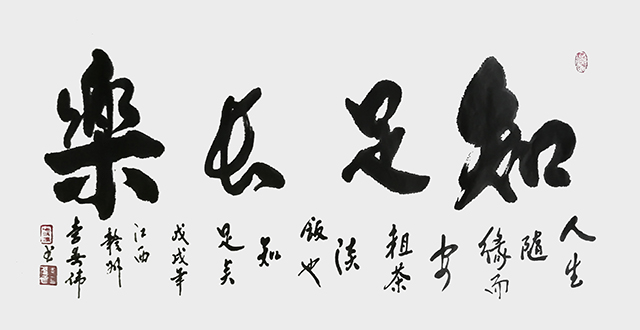 知足長樂
人生
隨
緣而
安
粗茶
淡
飯也
知
足矣
戊戌年
江西
贛州
李偉
书